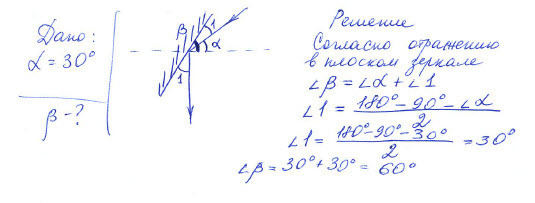 Дано:
α = 30°
β - ?
β
1
α
1
Решение
Согласно отражению
в плоском зеркале
∠β = ∠α + ∠1
∠1 = (180° - 90° - ∠α) / 2
∠1 = (180° - 90° - 30°) / 2 = 30°
∠β = 30° + 30° = 60°